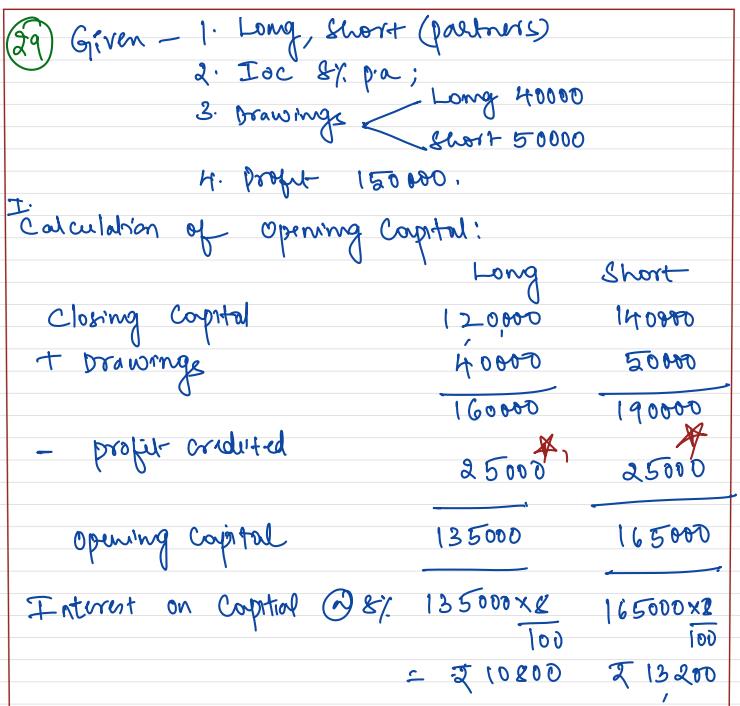 29 Given - 1. Long, Short (partners)
2. IOC 8% p.a;
3. Drawings Long 40000
Short 50000
4. Profit 150000.
I.
Calculation of opening Capital:
Long Short
Closing Capital 120,000 140000
+ Drawings 40000 50000
160000 190000
- profit credited 25000 25000
opening Capital 135000 165000
Interest on Capital @ 8% 135000×8/100 165000×8/100
= ₹ 10800 ₹ 13,200